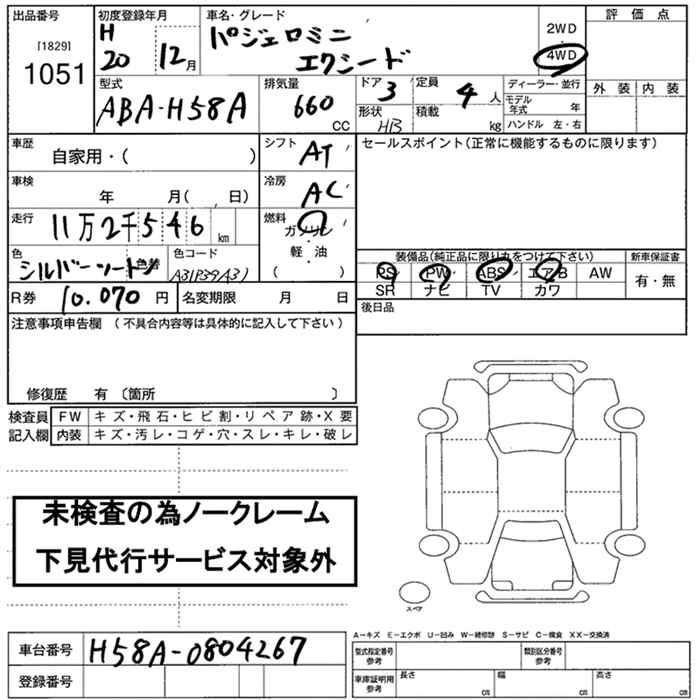 出品番号
[1829]
1051
初度登録年月
H
20 12月
車名・グレード
パジェロミニ
エクシード
2WD
4WD
評価点
外装 内装
型式
ABA-H58A
排気量
660
CC
ドア 3
形状 HB
定員 4 人
積載 kg
ディーラー・並行
モデル年式 年
ハンドル 左・右
車歴
自家用・( )
シフト AT
セールスポイント(正常に機能するものに限ります)
車検
年 月( 、 日)
冷房 AC
走行
11万2千546 km
燃料
ガソリン
軽・油
( )
色
シルバーツートン
色替
色コード
A31P39(A31)
装備品(純正品に限り丸をつけて下さい)
PS PW ABS エアB AW
SR ナビ TV カワ
新車保証書
有・無
R券 10.070 円
名変期限 月 日
後日品
注意事項申告欄(不具合内容等は具体的に記入して下さい)
修復歴 有〔箇所 〕
検査員
記入欄
FW キズ・飛石・ヒビ割・リペア跡・X要
内装 キズ・汚レ・コゲ・穴・スレ・キレ・破レ
未検査の為ノークレーム
下見代行サービス対象外
スペア
A－キズ E－エクボ U－凹み W－補修跡 S－サビ C－腐食 XX－交換済
車台番号 H58A-0804267
登録番号
型式指定番号
参考
類別区分番号
参考
車庫証明用
参考
長さ cm
幅 cm
高さ cm